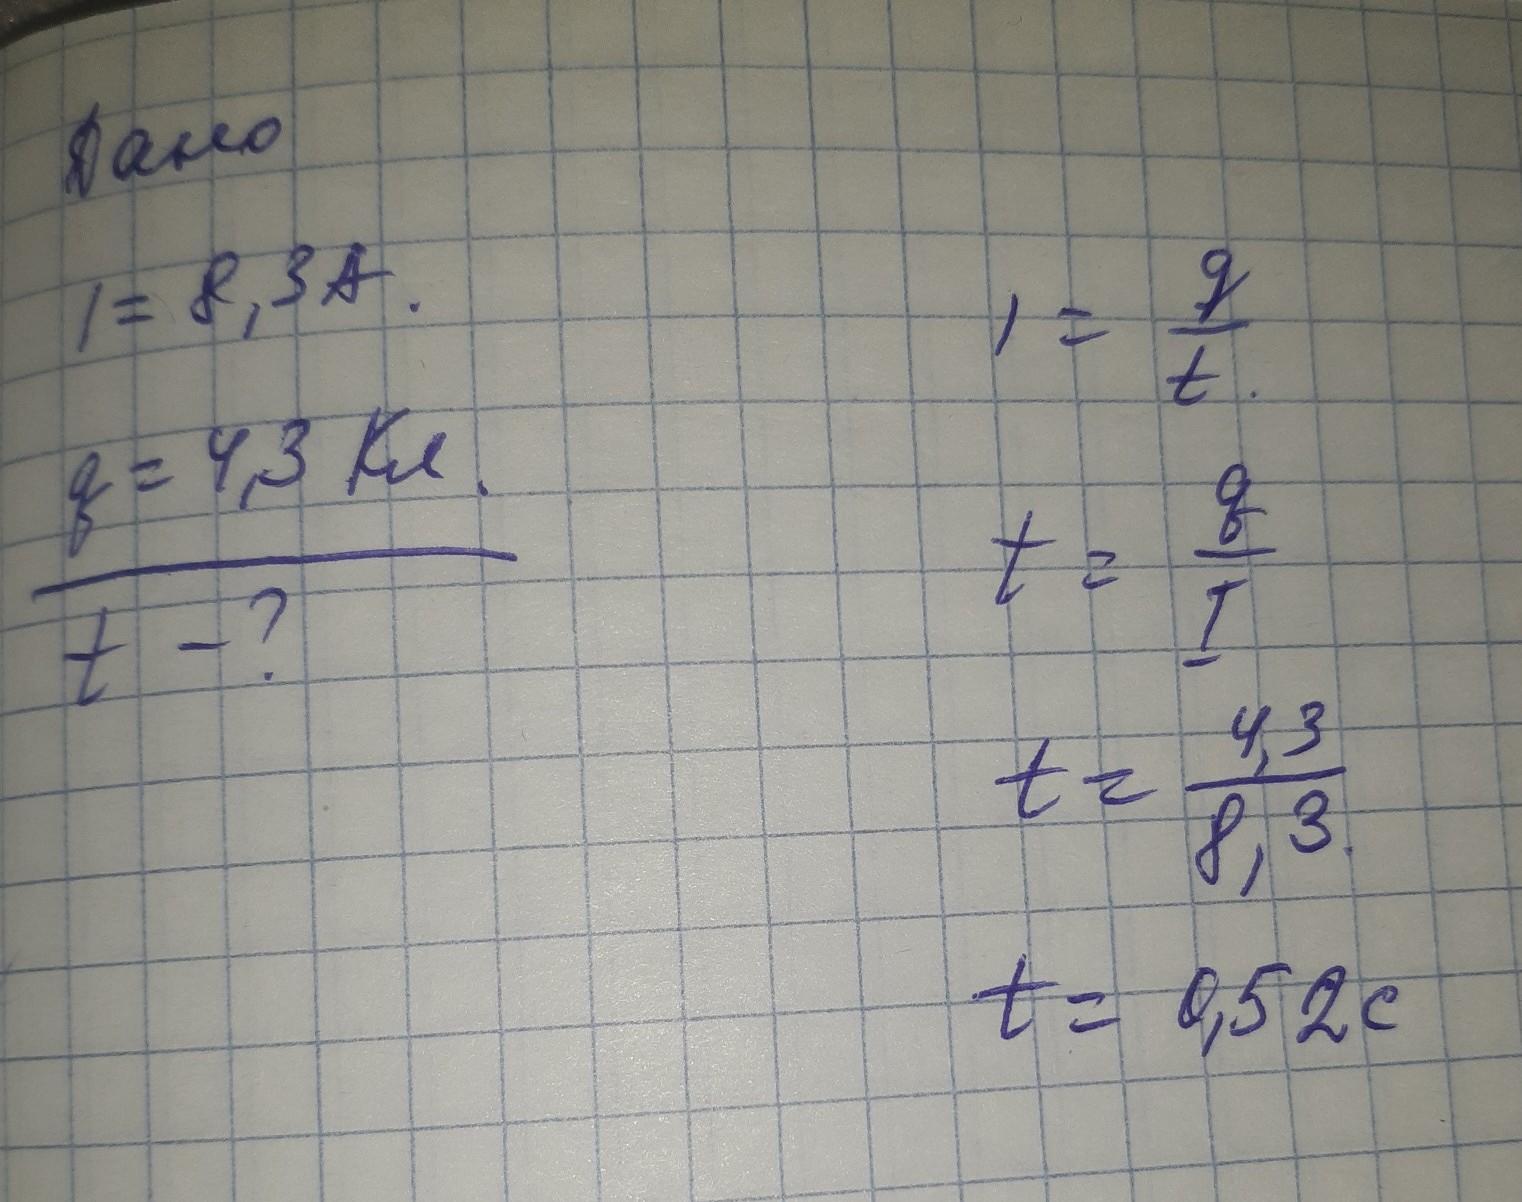 Дано
I = 8,3 А.
q = 4,3 Кл.
t - ?
I = q/t.
t = q/I
t = 4,3/8,3.
t = 0,52 с